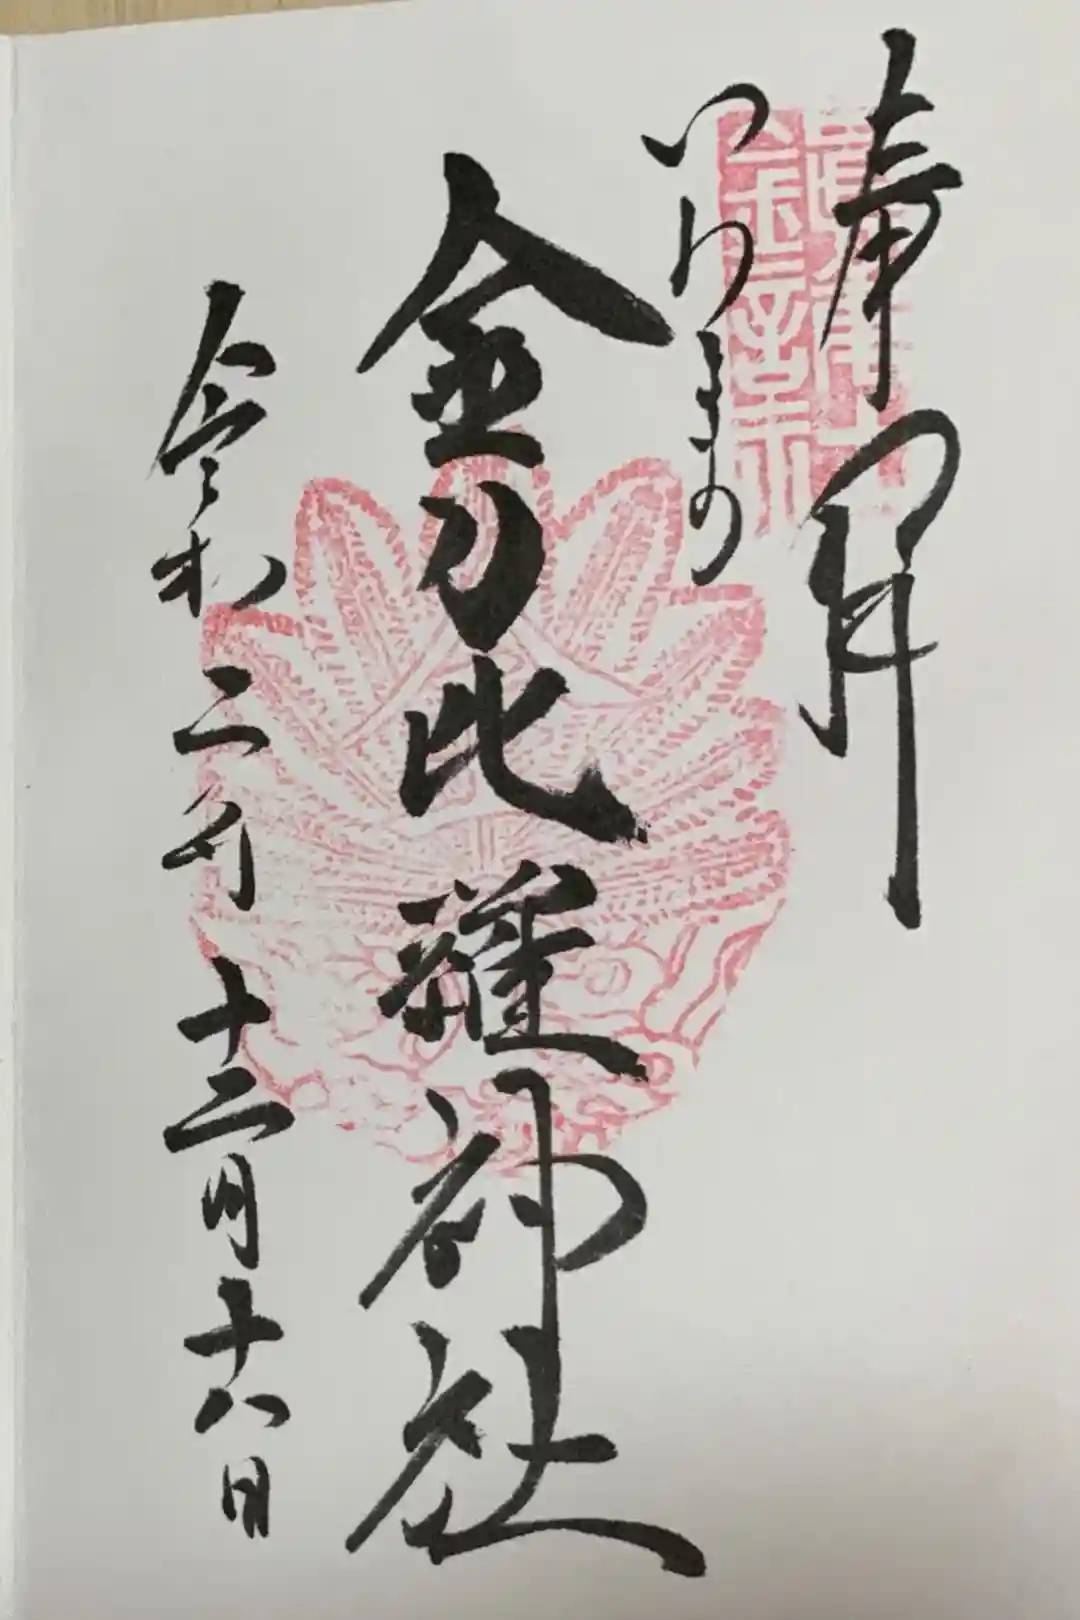 奉拝
いりまの
金刀比羅神社
令和二年十二月十八日